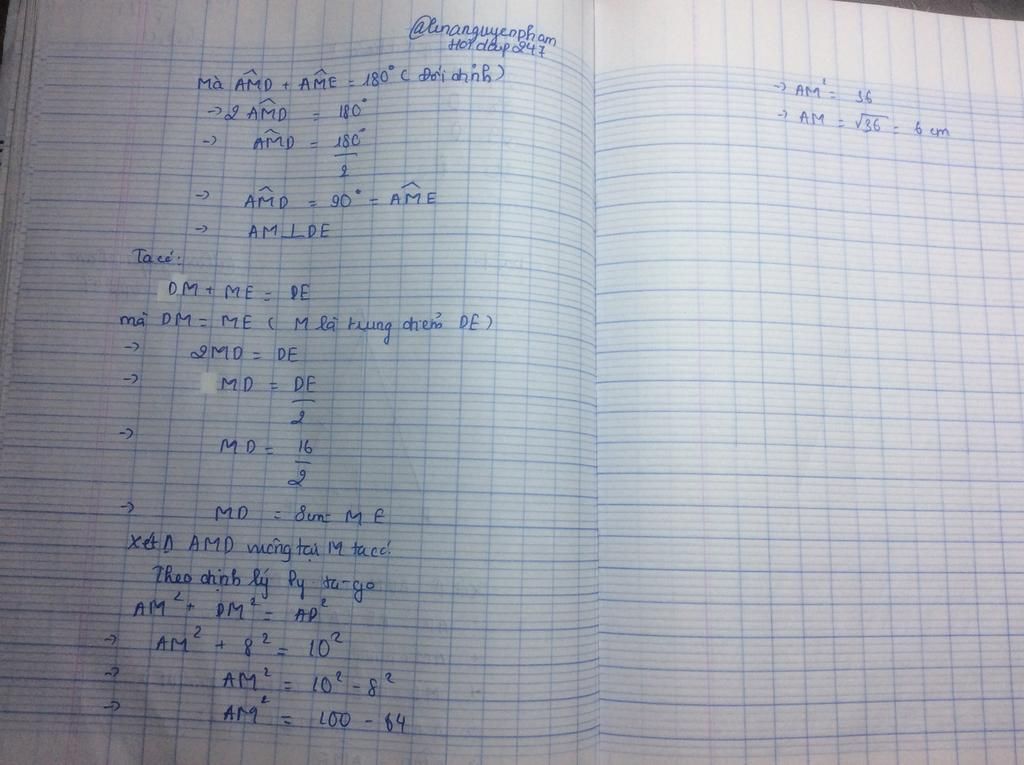 @linanguyenpham
Hoidap247
Mà AM̂D + AM̂E = 180° ( Đối đỉnh )
→ 2 AM̂D = 180°
→ AM̂D = 180°/2
→ AM̂D = 90° = AM̂E
→ AM ⊥ DE
Ta có:
DM + ME = DE
mà DM = ME ( M là trung điểm DE )
→ 2MD = DE
→ MD = DE/2
→ MD = 16/2
→ MD = 8cm = ME
Xét Δ AMD vuông tại M ta có:
Theo định lý Py-ta-go
AM² + DM² = AD²
→ AM² + 8² = 10²
→ AM² = 10² - 8²
→ AM² = 100 - 64
→ AM² = 36
→ AM = √36 = 6 cm